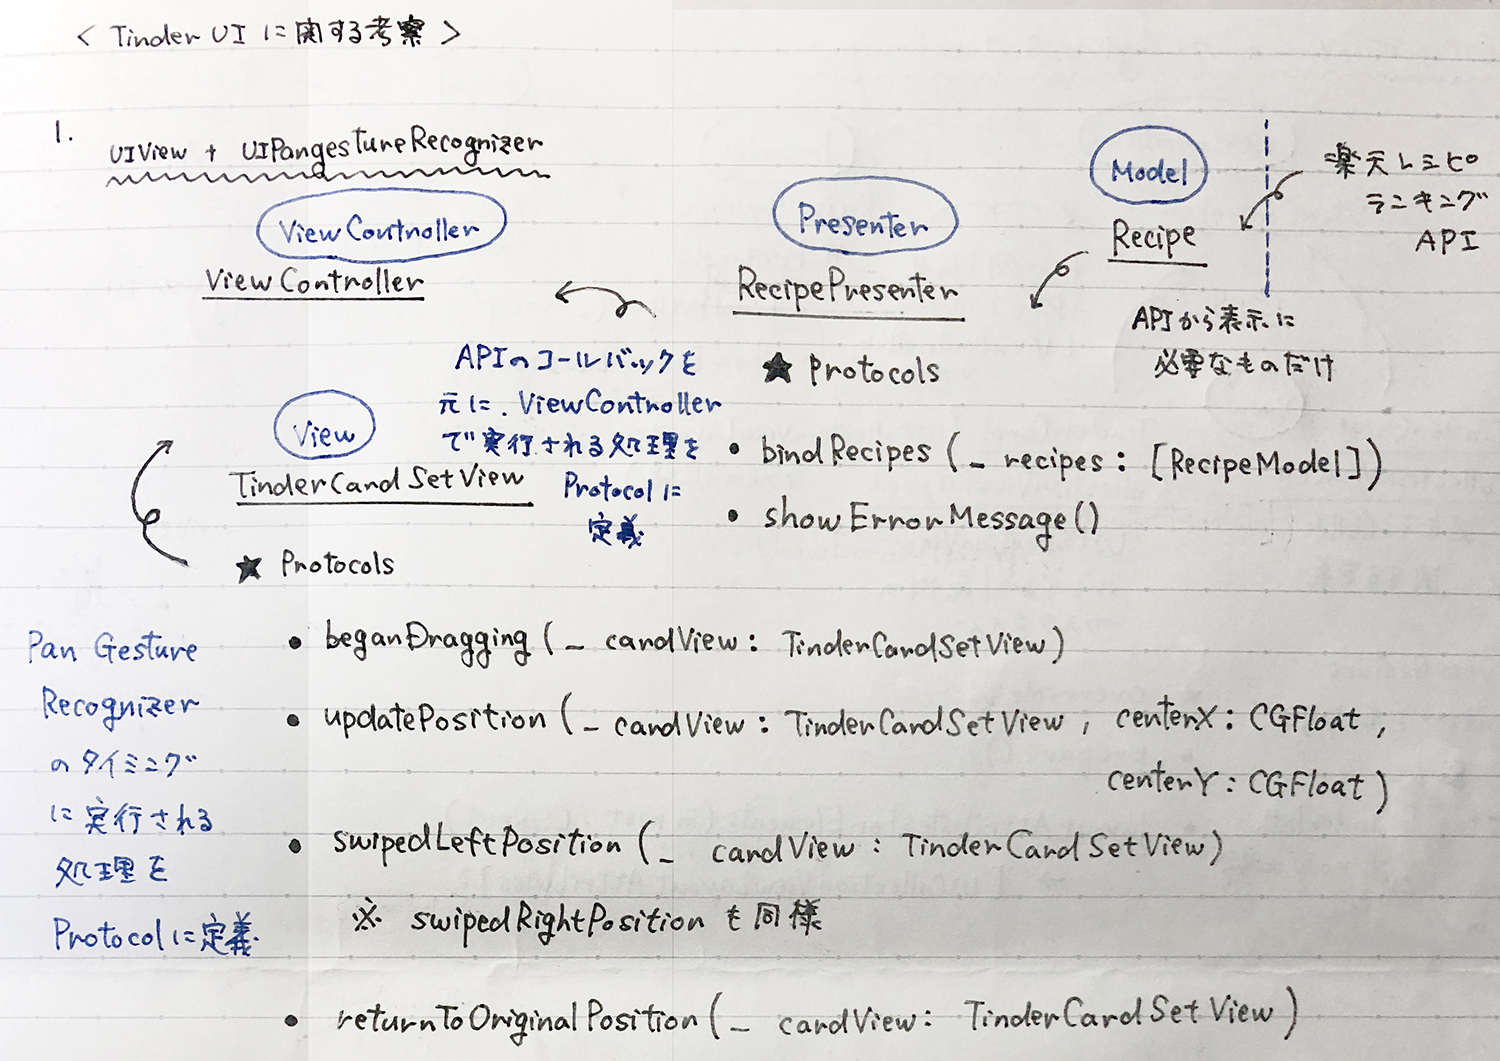 < Tinder UI に関する考察 >
1. UIView + UIPangestureRecognizer
ViewController
ViewController
Presenter
RecipePresenter
Model
Recipe
楽天レシピ
ランキング
API
APIから表示に
必要なものだけ
APIのコールバックを
元に、ViewController
で実行される処理を
Protocolに
定義
★ Protocols
• bindRecipes (_ recipes : [RecipeModel])
• showErrorMessage()
View
TinderCardSetView
★ Protocols
Pan Gesture
Recognizer
のタイミング
に実行される
処理を
Protocolに定義
• beganDragging (_ cardView : TinderCardSetView)
• updatePosition (_ cardView : TinderCardSetView , centerX : CGFloat ,
centerY : CGFloat )
• swipedLeftPosition (_ cardView : TinderCardSetView)
※ swipedRightPosition も同様
• returnToOriginalPosition (_ cardView : TinderCardSetView )